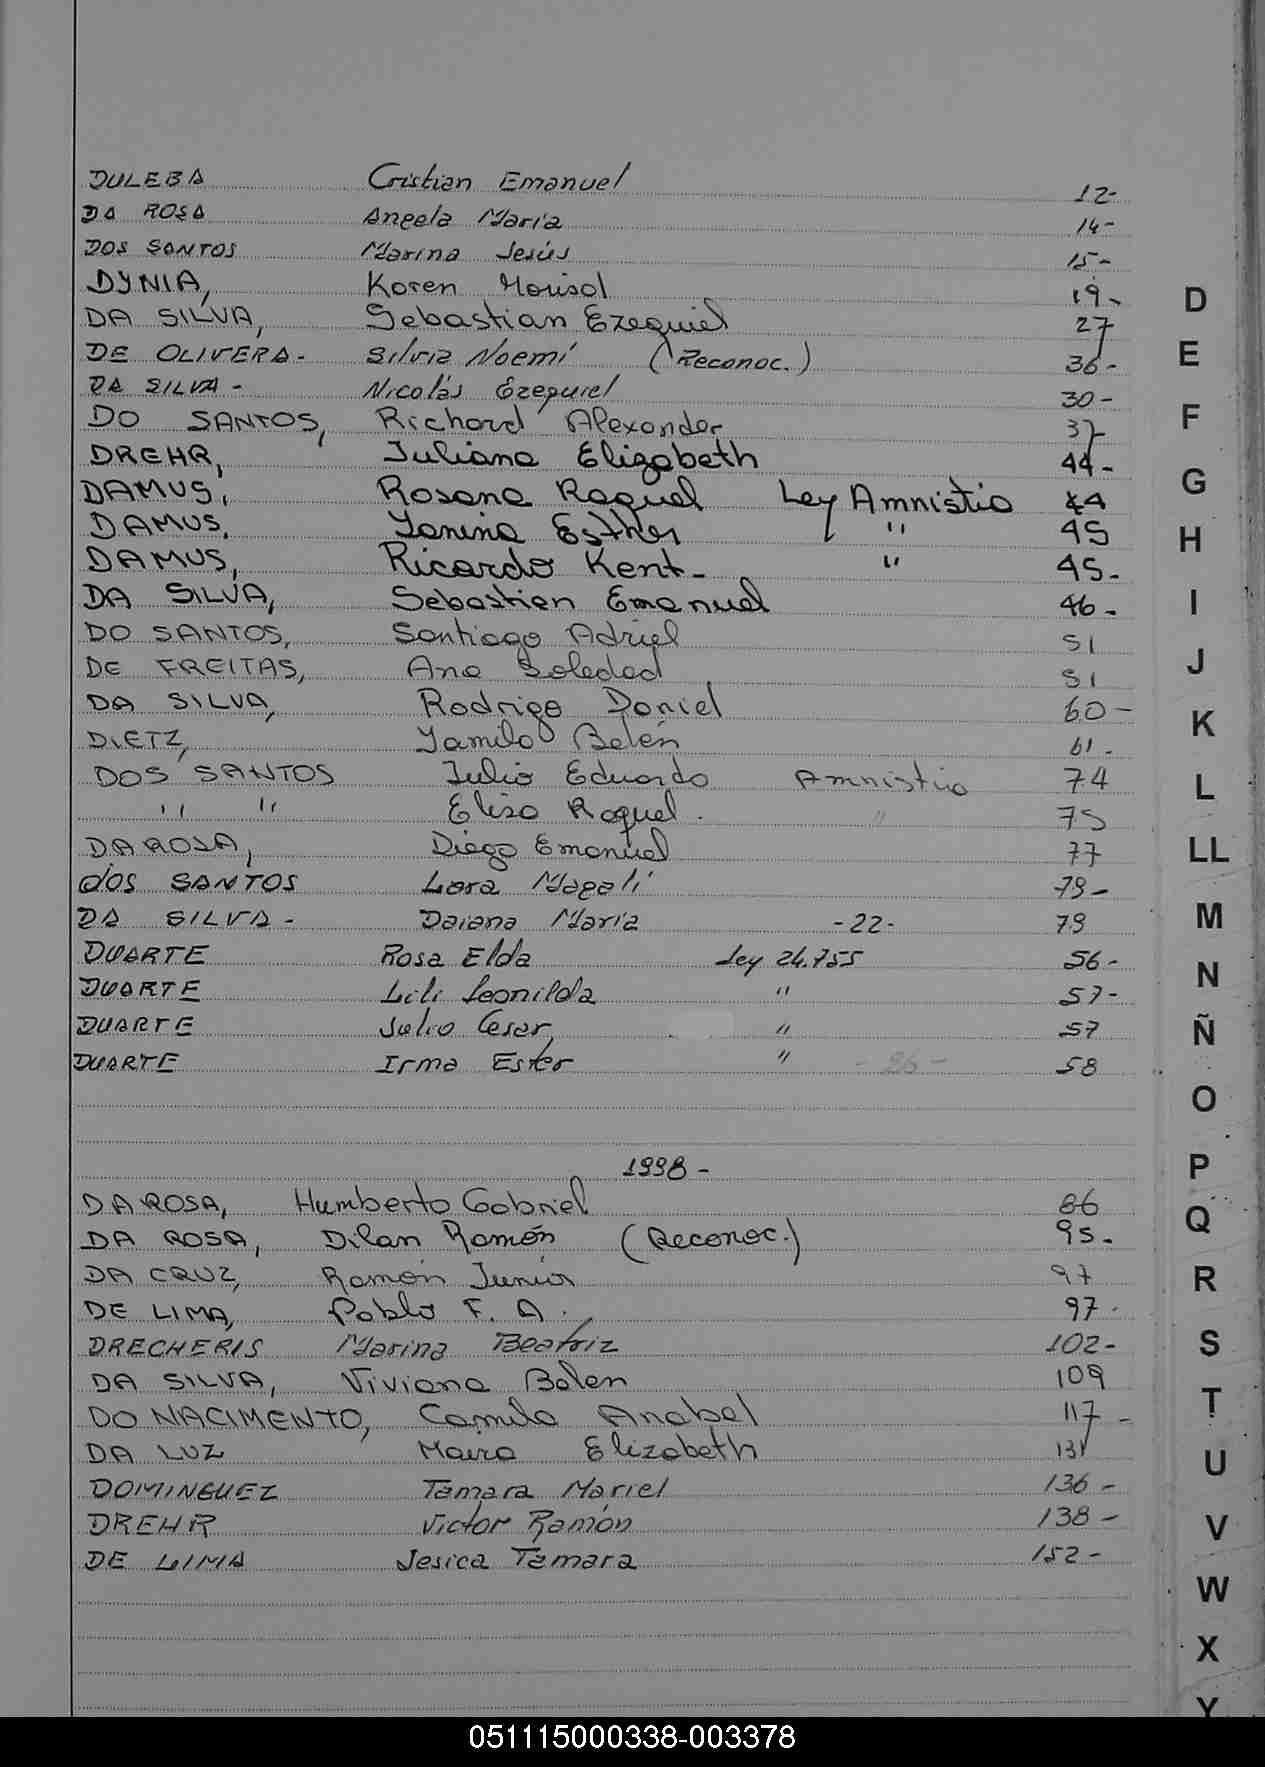 DULEBA Cristian Emanuel 12-
DA ROSA Angela María 14-
DOS SANTOS Marina Jesús 15-
DYNIA, Karen Marisol 19-
DA SILVA, Sebastian Ezequiel 27
DE OLIVERA- Silvia Noemí (Reconoc.) 36-
DA SILVA- Nicolás Ezequiel 30-
DO SANTOS, Richard Alexander 37-
DREHR, Juliana Elizabeth 44-
DAMUS, Rosana Raquel Ley Amnistia 44
DAMUS, Yanina Esther " 45
DAMUS, Ricardo Kent- " 45-
DA SILVA, Sebastian Emanuel 46-
DO SANTOS, Santiago Adriel 51
DE FREITAS, Ana Soledad 51
DA SILVA, Rodrigo Daniel 60-
DIETZ, Yamila Belén 61-
DOS SANTOS Julio Eduardo Amnistia 74
" " Elisa Raquel. " 75
DA ROSA, Diego Emanuel 77
dos SANTOS Lara Magalí 79-
DA SILVA- Daiana María -22- 79
DUARTE Rosa Elda Ley 24.755 56-
DUARTE Lili Leonilda " 57-
DUARTE Julio Cesar " 57
DUARTE Irma Ester " -26- 58
1998-
DA ROSA, Humberto Gabriel 86
DA ROSA, Dilan Ramón (Reconoc.) 95-
DA CRUZ, Ramón Junior 97
DE LIMA, Pablo F. A. 97-
DRECHERIS Marina Beatriz 102-
DA SILVA, Viviana Belen 109
DO NACIMENTO, Camila Anabel 117-
DA LUZ Maira Elizabeth 131
DOMINGUEZ Tamara Mariel 136-
DREHR Victor Ramón 138-
DE LIMA Jesica Tamara 152-
D
E
F
G
H
I
J
K
L
LL
M
N
Ñ
O
P
Q
R
S
T
U
V
W
X
Y
051115000338-003378